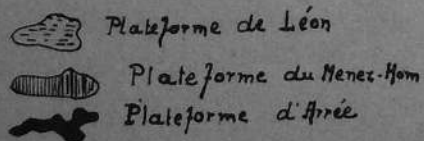 Plateforme de Léon
Plateforme du Menez-Hom
Plateforme d'Arrée